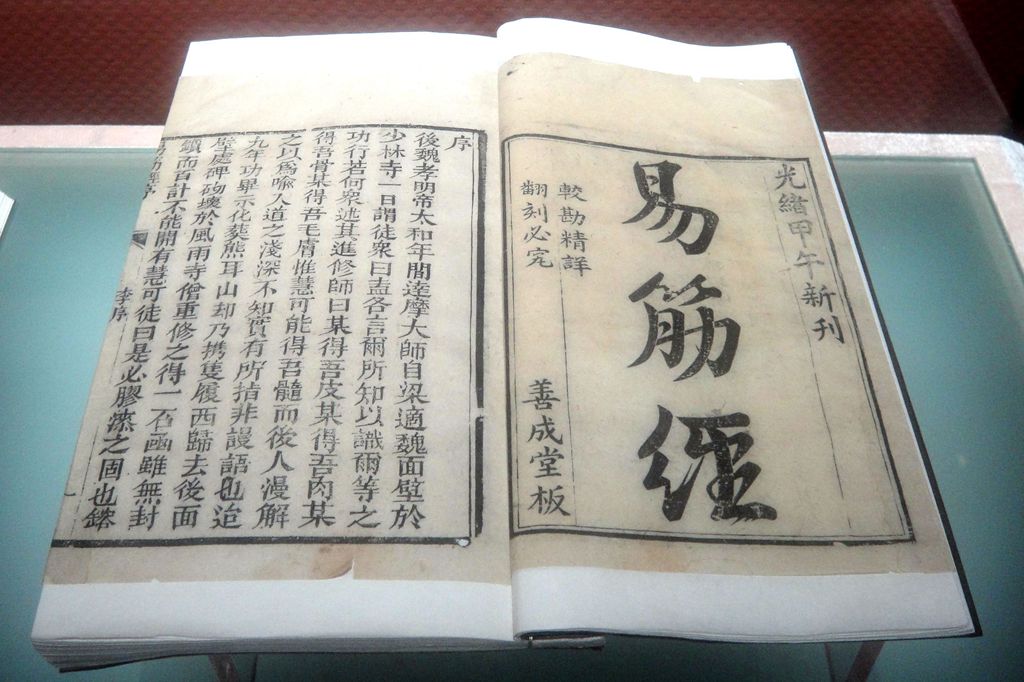 光緒甲午新刊
易筋經
較勘精詳
翻刻必究
善成堂板
序
後魏孝明帝太和年間達摩大師自梁適魏面壁於
少林寺一日謂徒衆曰盍各言爾所知以識爾等之
功行若何衆述其進修師曰某得吾皮某得吾肉某
得吾骨某得吾毛膚惟慧可能得吾髓而後人漫解
之以爲喻人道之淺深不知實有所指非謾語也迨
九年功畢示化葬熊耳山却乃携隻履西歸去後面
壁處碑砌壞於風雨寺僧重修之得一石函雖無封
鎖而百計不能開有慧可徒曰是必膠漆之固也鎔